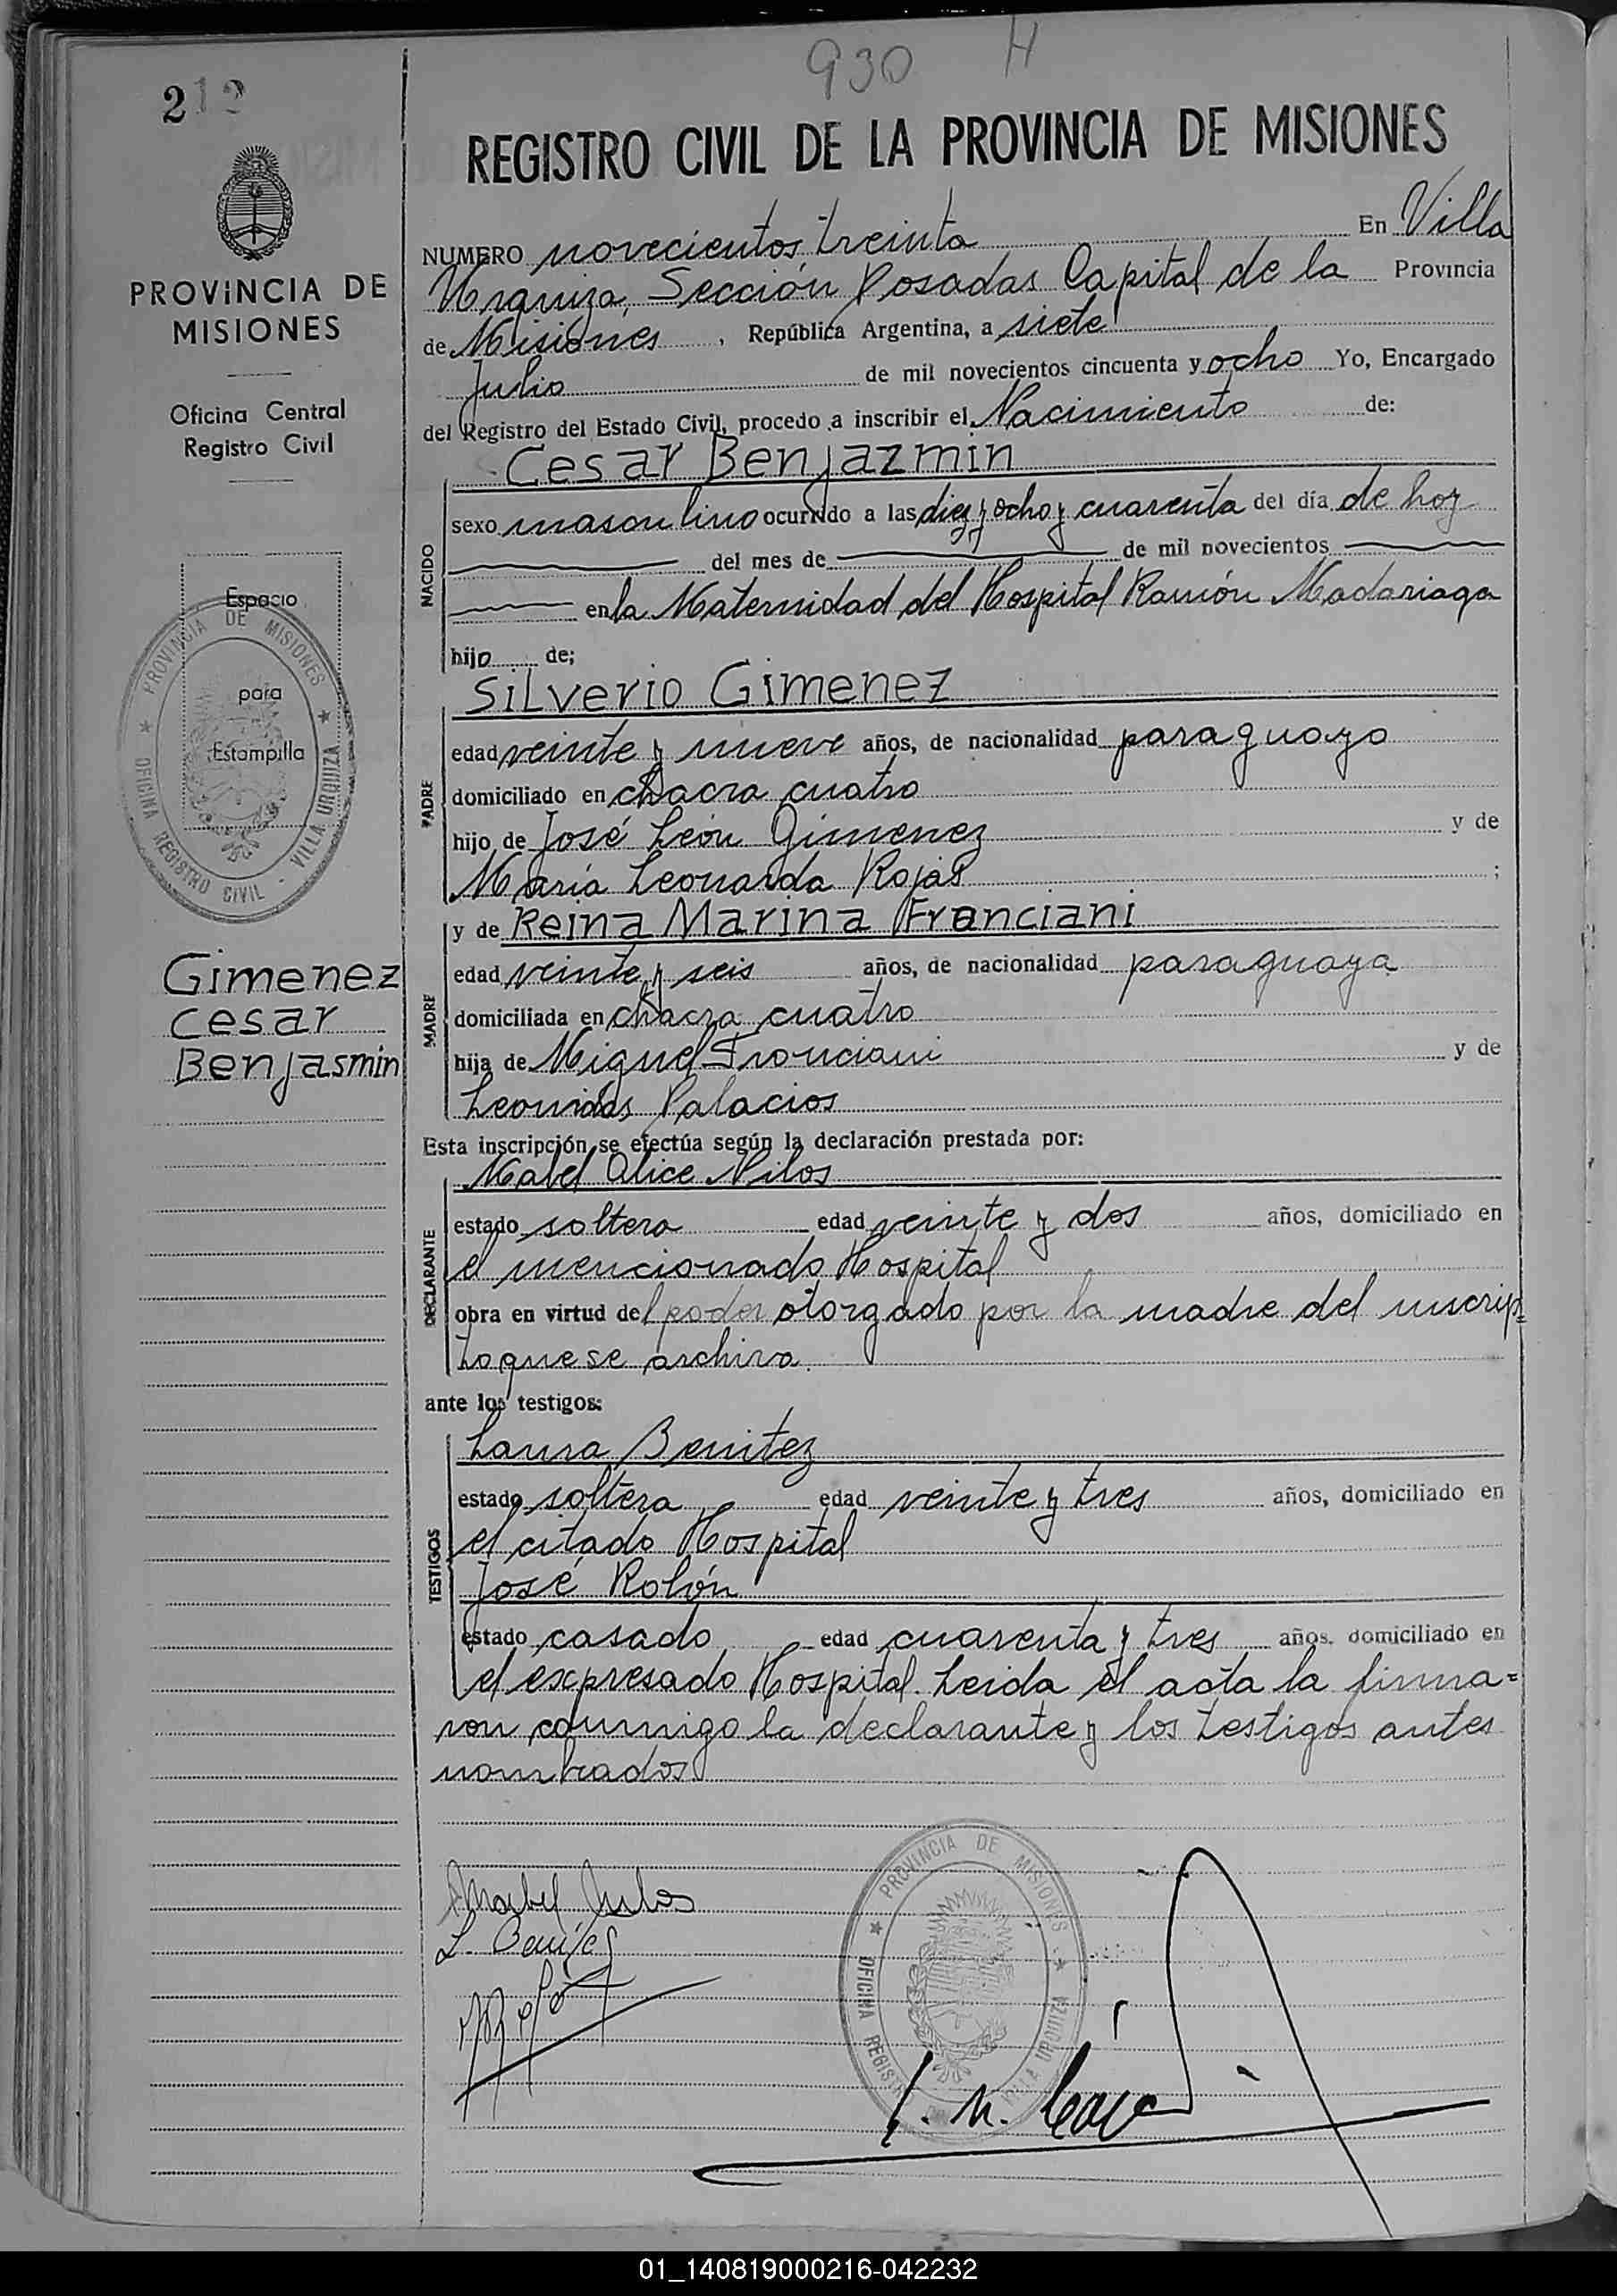 930 H
212
REGISTRO CIVIL DE LA PROVINCIA DE MISIONES
PROVINCIA DE
MISIONES
Oficina Central
Registro Civil
NUMERO novecientos treinta En Villa
Urquiza, Sección Posadas Capital de la Provincia
de Misiones, República Argentina, a siete
Julio de mil novecientos cincuenta y ocho Yo, Encargado
del Registro del Estado Civil, procedo a inscribir el Nacimiento de:
NACIDO
Cesar Benjazmin
sexo masculino ocurrido a las diez y ocho y cuarenta del día de hoy
del mes de de mil novecientos
en la Maternidad del Hospital Ramón Madariaga
hijo de;
Espacio
para
Estampilla
PROVINCIA DE MISIONES
OFICINA REGISTRO CIVIL - VILLA URQUIZA
PADRE
Silverio Gimenez
edad veinte y nueve años, de nacionalidad paraguayo
domiciliado en chacra cuatro
hijo de José León Gimenez y de
María Leonarda Rojas ;
y de Reina Marina Franciani
Gimenez
Cesar
Benjasmin
MADRE
edad veinte y seis años, de nacionalidad paraguaya
domiciliada en chacra cuatro
hija de Miguel Franciani y de
Leonidas Palacios
Esta inscripción se efectúa según la declaración prestada por:
DECLARANTE
Mabel Alice Nilos
estado soltera edad veinte y dos años, domiciliado en
el mencionado Hospital
obra en virtud del poder otorgado por la madre del inscrip=
to que se archiva.
ante los testigos:
TESTIGOS
Laura Benitez
estado soltera edad veinte y tres años, domiciliado en
el citado Hospital
José Rolón
estado casado edad cuarenta y tres años, domiciliado en
el expresado Hospital. Leida el acta la firma=
ron conmigo la declarante y los testigos antes
nombrados.
Mabel Nilos
L. Benitez
PROVINCIA DE MISIONES
OFICINA REGISTRO VILLA URQUIZA
01_140819000216-042232